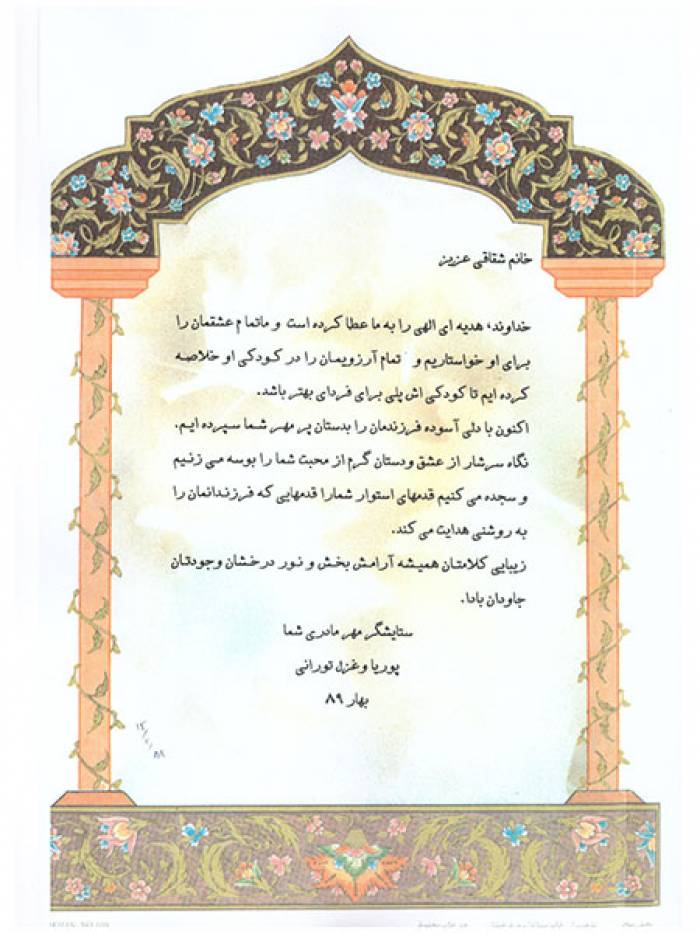 خانم شقاقی عزیز
خداوند، هدیه ای الهی را به ما عطا کرده است و ماتمام عشقمان را
برای او خواستاریم و تمام آرزویمان را در کودکی او خلاصه
کرده ایم تا کودکی اش پلی برای فردای بهتر باشد.
اکنون با دلی آسوده فرزندمان را بدستان پر مهر شما سپرده ایم.
نگاه سرشار از عشق ودستان گرم از محبت شما را بوسه می زنیم
و سجده می کنیم قدمهای استوار شمارا قدمهایی که فرزندانمان را
به روشنی هدایت می کند.
زیبایی کلامتان همیشه آرامش بخش و نور درخشان وجودتان
جاودان بادا.
ستایشگر مهر مادری شما
پوریا وغزل تورانی
بهار ۸۹